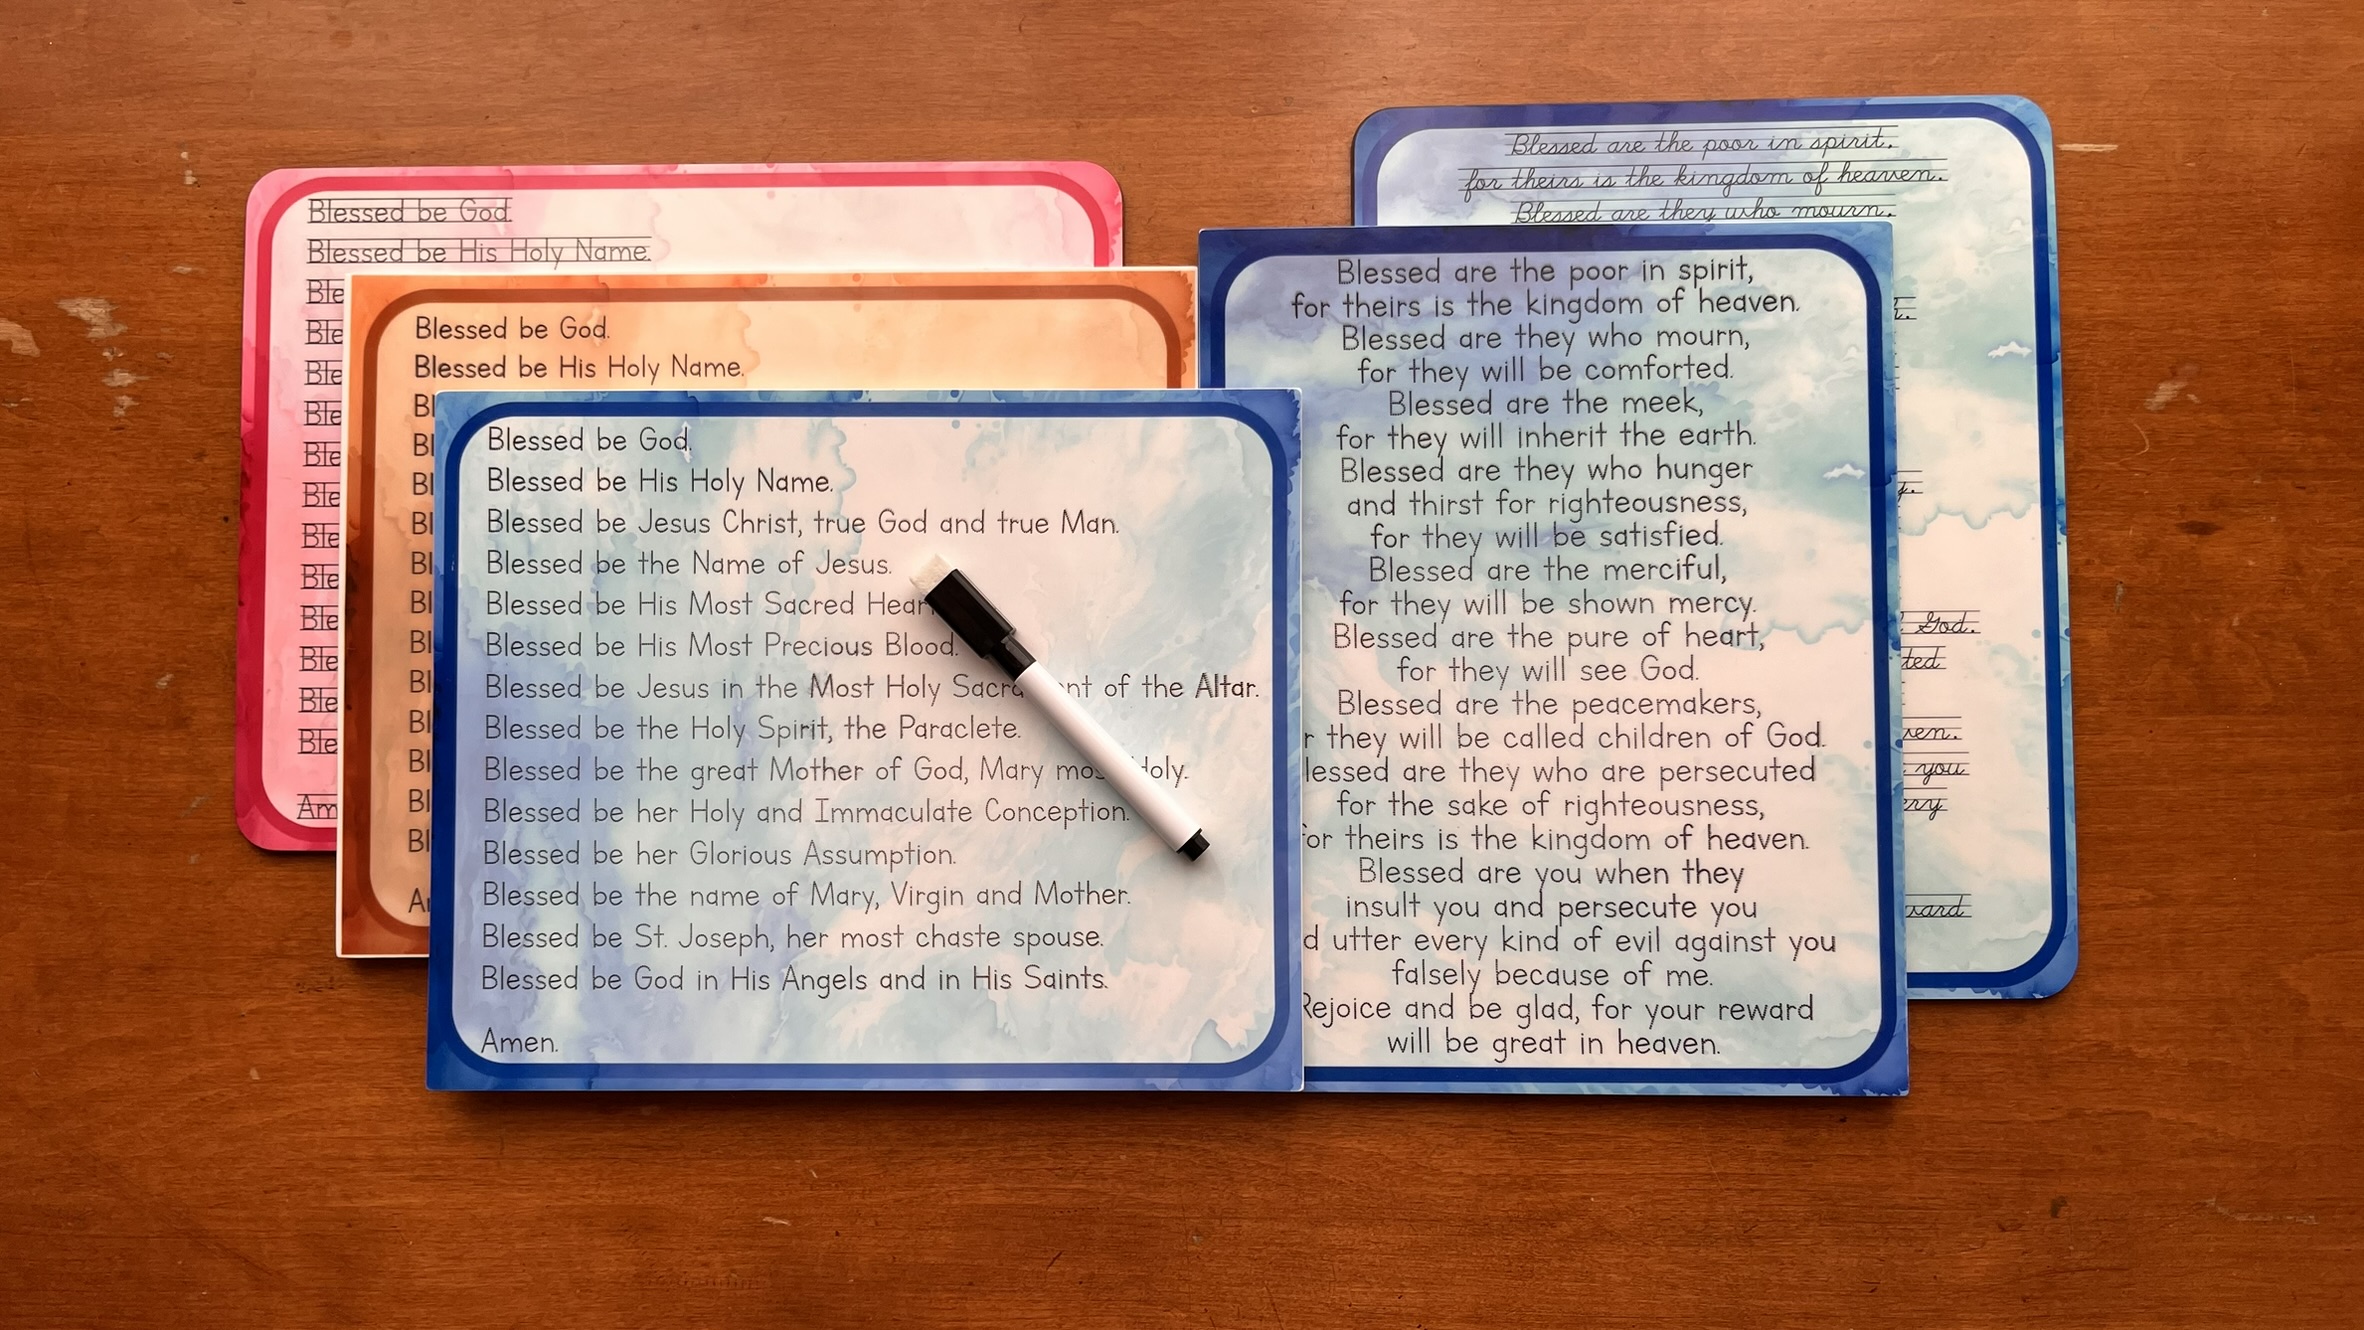 Blessed be God.
Blessed be His Holy Name.
Blessed be God.
Blessed be His Holy Name.
Blessed be God.
Blessed be His Holy Name.
Blessed be Jesus Christ, true God and true Man.
Blessed be the Name of Jesus.
Blessed be His Most Sacred
Blessed be His Most Precious Blood.
Blessed be Jesus in the Most Holy of the Altar.
Blessed be the Holy Spirit, the Paraclete.
Blessed be the great Mother of God, Mary
Blessed be her Holy and Immaculate Conception.
Blessed be her Glorious Assumption.
Blessed be the name of Mary, Virgin and Mother.
Blessed be St. Joseph, her most chaste spouse.
Blessed be God in His Angels and in His Saints.
Amen.
Blessed are the poor in spirit,
for theirs is the kingdom of heaven.
Blessed are they who mourn,
Blessed are the poor in spirit,
for theirs is the kingdom of heaven.
Blessed are they who mourn,
for they will be comforted.
Blessed are the meek,
for they will inherit the earth.
Blessed are they who hunger
and thirst for righteousness,
for they will be satisfied.
Blessed are the merciful,
for they will be shown mercy.
Blessed are the pure of heart,
for they will see God.
Blessed are the peacemakers,
they will be called children of God.
are they who are persecuted
for the sake of righteousness,
for theirs is the kingdom of heaven.
Blessed are you when they
insult you and persecute you
utter every kind of evil against you
falsely because of me.
Rejoice and be glad, for your reward
will be great in heaven.
God.
you